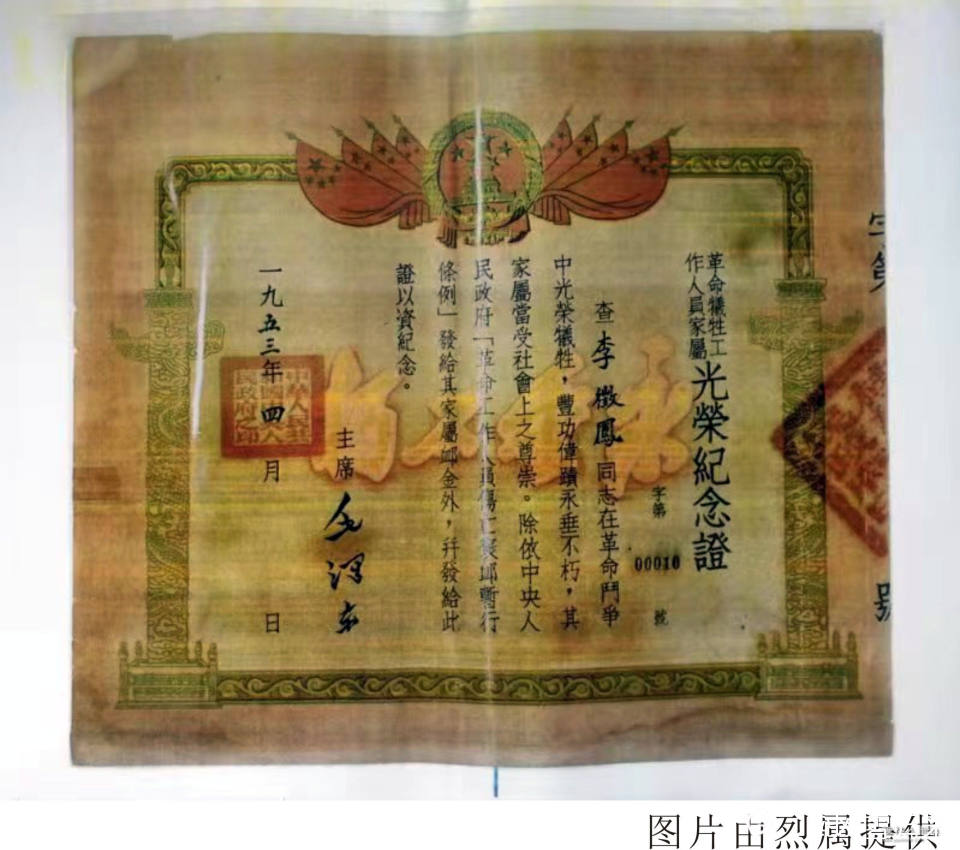 革命犧牲工
作人員家屬
光榮紀念證
字第
00010
號
查李微鳳同志在革命鬥爭
中光榮犧牲，豐功偉蹟永垂不朽，其
家屬當受社會上之尊崇。除依中央人
民政府「革命工作人員傷亡褒卹暫行
條例」發給其家屬卹金外，幷發給此
證以資紀念。
主席 毛澤东
一九五三年四月 日
中央人民
政府之印
永垂不朽
字第
號
图片由烈属提供